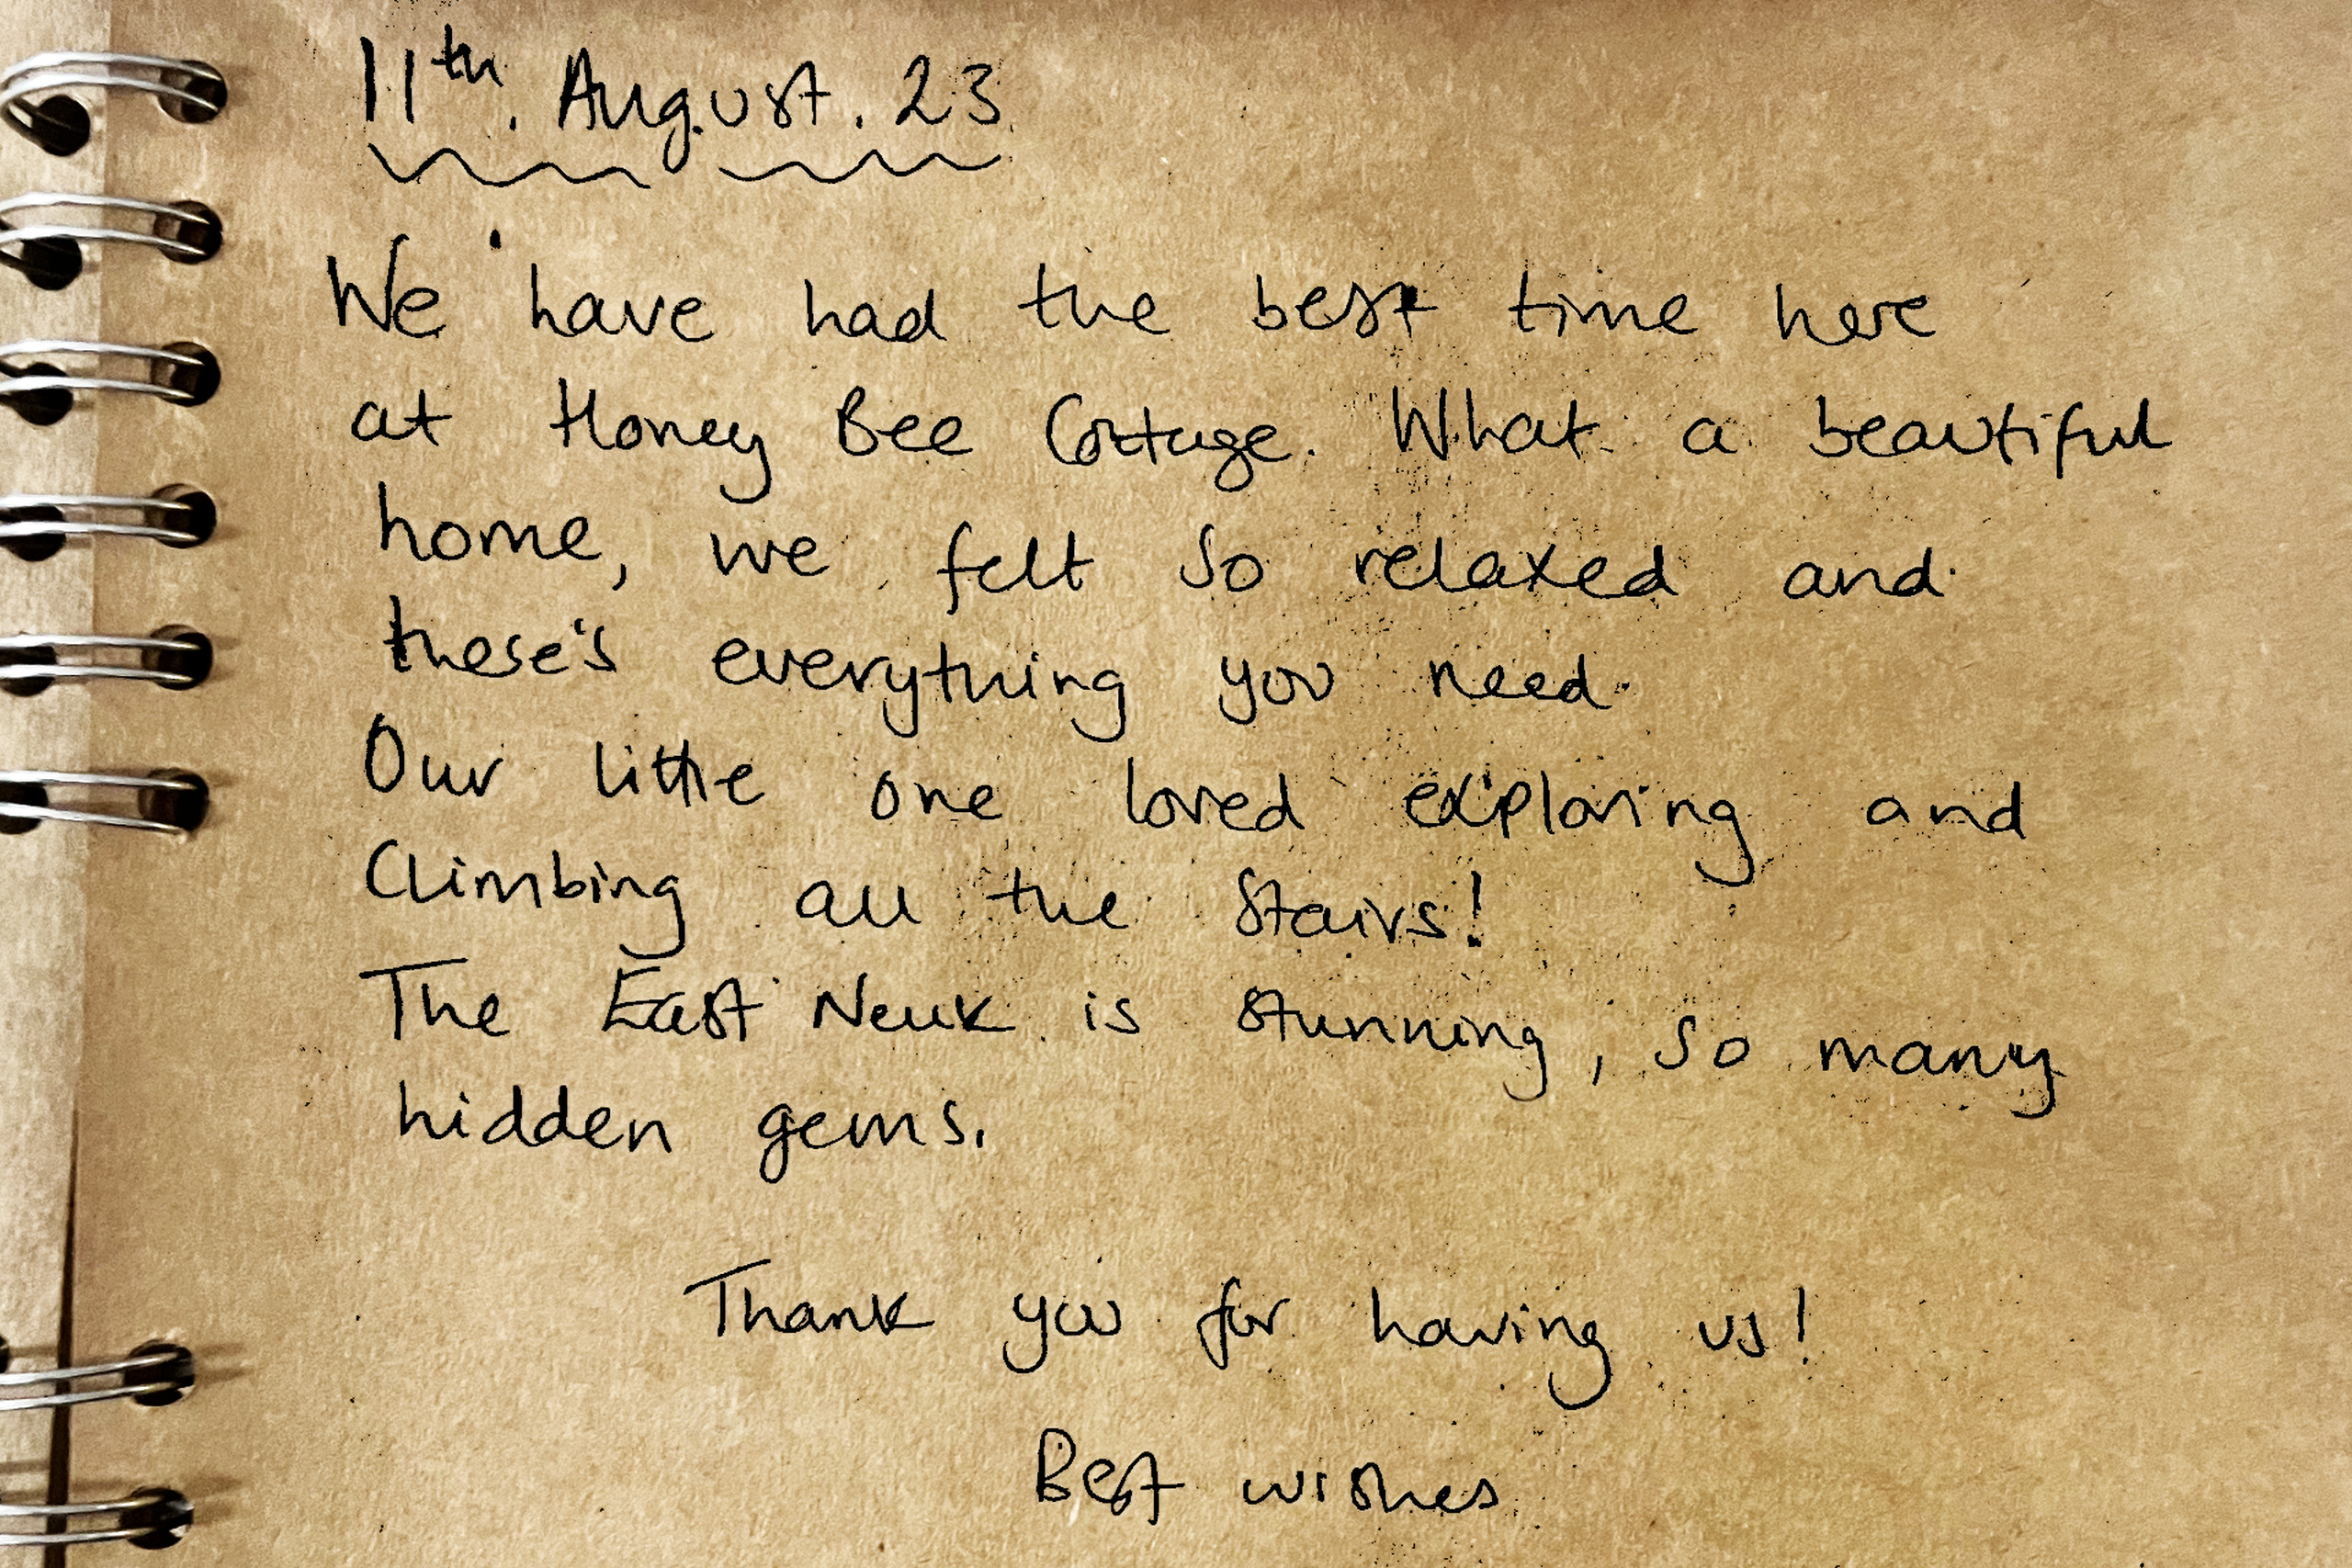 11th. August. 23
We have had the best time here
at Honey Bee Cottage. What a beautiful
home, we felt so relaxed and
there's everything you need.
Our little one loved exploring and
Climbing all the Stairs!
The East Neuk is stunning, so many
hidden gems.
Thank you for having us!
Best wishes